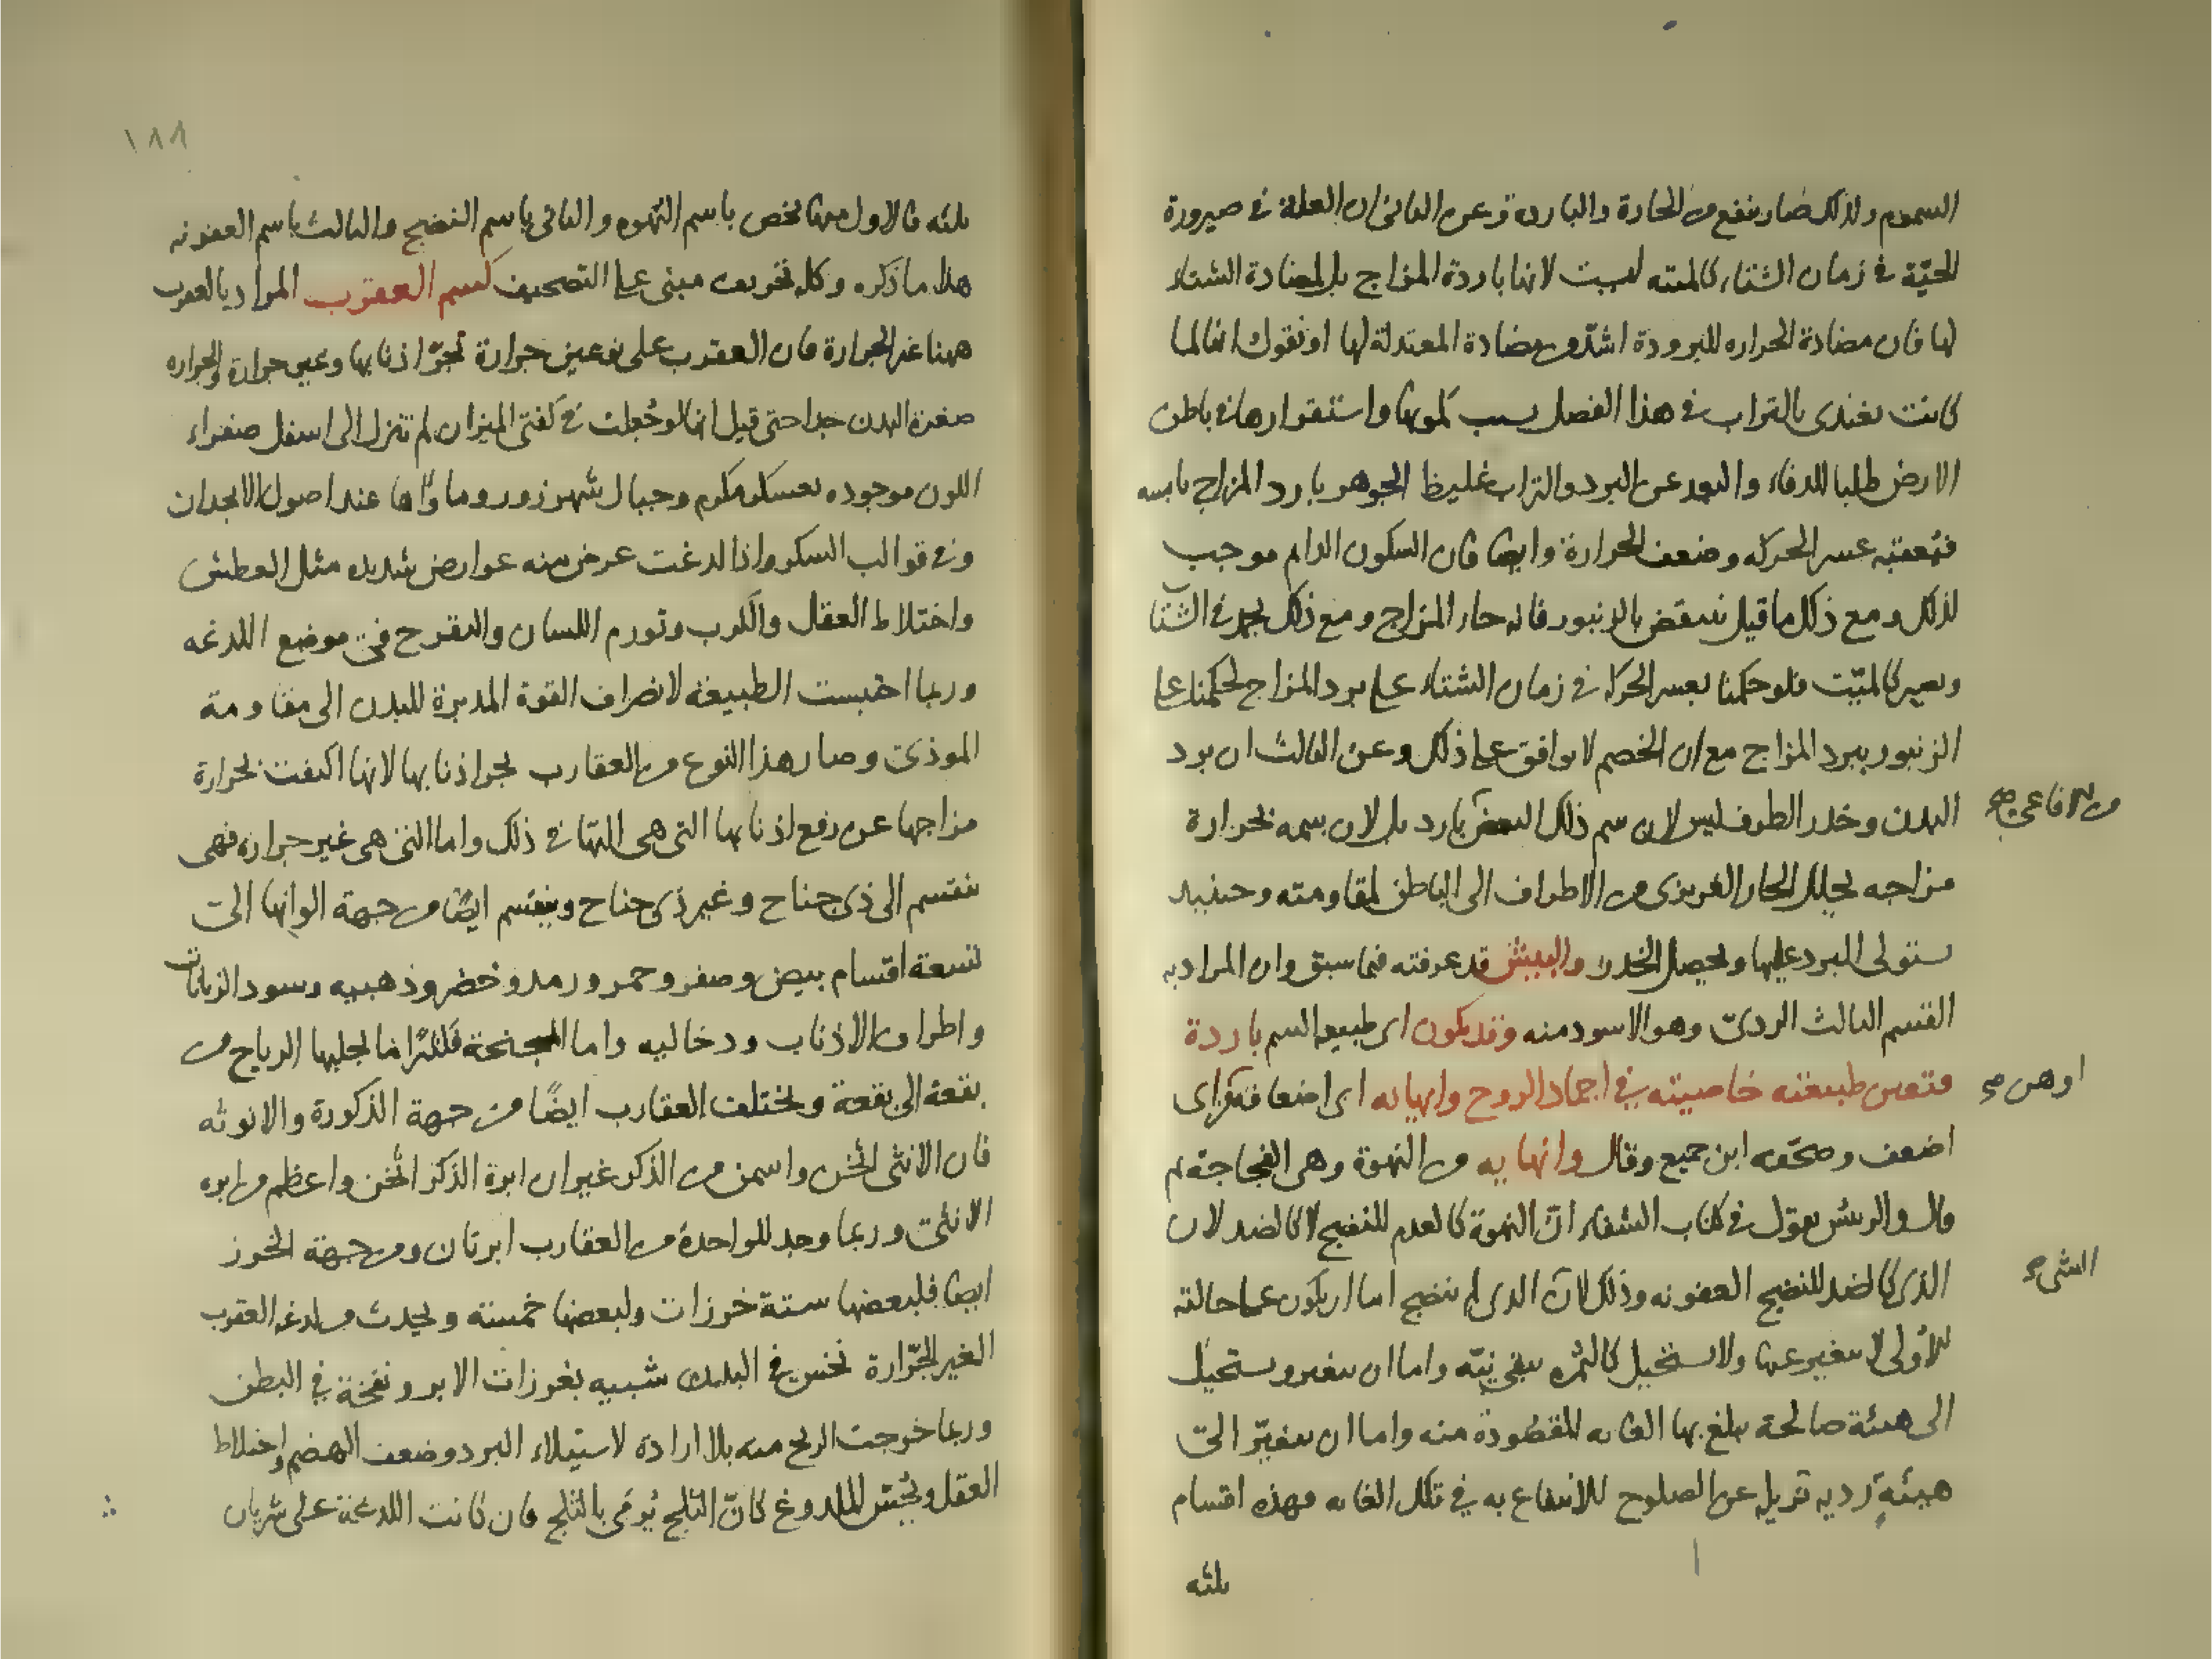 السموم ولذلك صار ينفع من الحارة والباردة وعن الثانى ان العلة فى صيرورة
الحيّة فى زمان الشتاء كالميته ليست لانها باردة المزاج بل لمضادة الشتاء
لها فان مضادة الحراره للبرودة اشدّ من مضادة المعتدلة لها او نقول انها لما
كانت تغتدى بالتراب فى هذا الفصل بسبب كمونها واستقرارها فى باطن
الارض طلبا للدفاء والبعد عن البرد والتراب غليظ الجوهر بارد المزاج يابسه
فيعقبه عسر الحركه وضعف الحرارة وايضا فان السكون الدايم موجب
لذلك ومع ذلك ما قيل ينتقض بالزنبور فانه حار المزاج ومع ذلك يجمد فى الشتا
ويصير كالميّت فلو حكمنا بعسر الحركه فى زمان الشتاء على برد المزاج لحكمنا على
الزنبور ببرد المزاج مع ان الخصم لا يوافق على ذلك وعن الثالث ان برد
البدن وخدر الطرف ليس لان سم ذلك البعض بارد بل لان سمه بحرارة
من الافاعى صح
مزاجه يحلل الحار الغريزى من الاطراف الى الباطن لمقاومته وحينيد
يستولى البرد عليها ويحصل الخدر والبيش قد عرفته فيما سبق وان المراد به
القسم الثالث الردى وهو الاسود منه وقد يكون اى طبيعه السم باردة
فتعين طبيعته خاصيته فى اجماد الروح وانهايه اى اضعافه اى
اوهن صح
اضعف وصحّفه ابن جميع وقال وانهايه من النهوة وهى الفجاجة ثم
قال والريس يقول فى كتاب الشفاء انّ النهوة كالعدم للنضج لا كالضد لان
الذى كالضد للنضج العفونه وذلك لانّ الذى لم ينضج اما ان يكون على حالته
الشى صح
الاولى لا يتغير عنها ولا يستحيل كالثمره تبقى نيّه واما ان يتغير ويستحيل
الى هيئة صالحة يبلغ بها الغايه المقصودة منه واما ان يتغيّر الى
هيئة رديه تزيله عن الصلوح للانتفاع به فى تلك الغايه فهذه اقسام
ثلثه
١٨٨
ثلثه فالاول منها يخص باسم النهوه والثانى باسم النضج والثالث باسم العفونه
هذا ما ذكره وكله تخريف مبنى على التصحيف كسم العقرب المراد بالعقرب
ههنا غير الجرارة فان العقرب على نوعين جرارة تجرّ اذنابها وغير جرارة والجراره
صغيرة البدن جدا حتى قيل انها لو جُعلت فى كفتى الميزان لم تنزل الى اسفل صفراء
اللون موجوده بعسكر مكرم وجبال شهرزور وماوّاها عند اصول الانجدان
وفى قوالب السكر واذا لدغت عرض منه عوارض شديده مثل العطش
واختلاط العقل والكرب وتورم اللسان والتقرح فى موضع اللدغه
وربما احتبست الطبيعة لانصراف القوة المدبرة للبدن الى مقاومة
الموذى وصار هذا النوع من العقارب يجر اذنابها لانها اكتفت بحرارة
مزاجها عن رفع اذنابها التى هى التها فى ذلك واما التى هى غير جراره فهى
تنقسم الى ذى جناح وغير ذى جناح وينقسم ايضا من جهة الوانها الى
تسعة اقسام بيض وصفر وحمر ورمد وخضر وذهبيه وسود الزبانات
واطراف الاذناب ودخانيه واما المجنحة فكثيرًا ما تجلبها الرياح من
بقعة الى بقعة ويختلف العقارب ايضًا من جهة الذكورة والانوثه
فان الانثى اثخن واسمن من الذكر غير ان ابرة الذكر اثخن واعظم من ابره
الانثى وربما وجد للواحدة من العقارب ابرتان ومن جهة الخرز
ايضا فلبعضها ستة خرزات ولبعضها خمسته ويحدث من لدغه العقرب
الغير الجرّارة نخس فى البدن شبيه بغرزات الابر ونفخة فى البطن
وربما خرجت الريح منه بلا ارادة لاستيلاء البرد وضعف الهضم واختلاط
العقل ويُحِسّ الملدوغ كانّ الثلج يُرمَى بالثلج فان كانت اللدغة على شريان